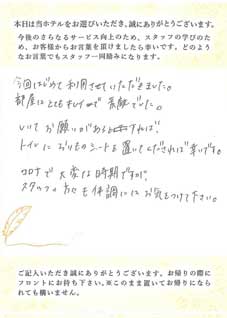 本日は当ホテルをお選びいただき、誠にありがとうございます。
今後のさらなるサービス向上のため、スタッフの学びのた
め、お客様からお言葉を頂けましたら幸いです。どのよう
なお言葉でもスタッフ一同励みになります。
今回はじめて利用させていただきました。
部屋はとてもキレイで素敵でした。
しいてお願いがあるとすれば、
トイレにおりものシートを置いてくだされば幸いです。
コロナで大変な時期ですが、
スタッフの方々も体調にはお気をつけて下さい。
ご記入いただき誠にありがとうございます。お帰りの際に
フロントにお持ち下さい。※このまま置いてお帰りになら
れても構いません。